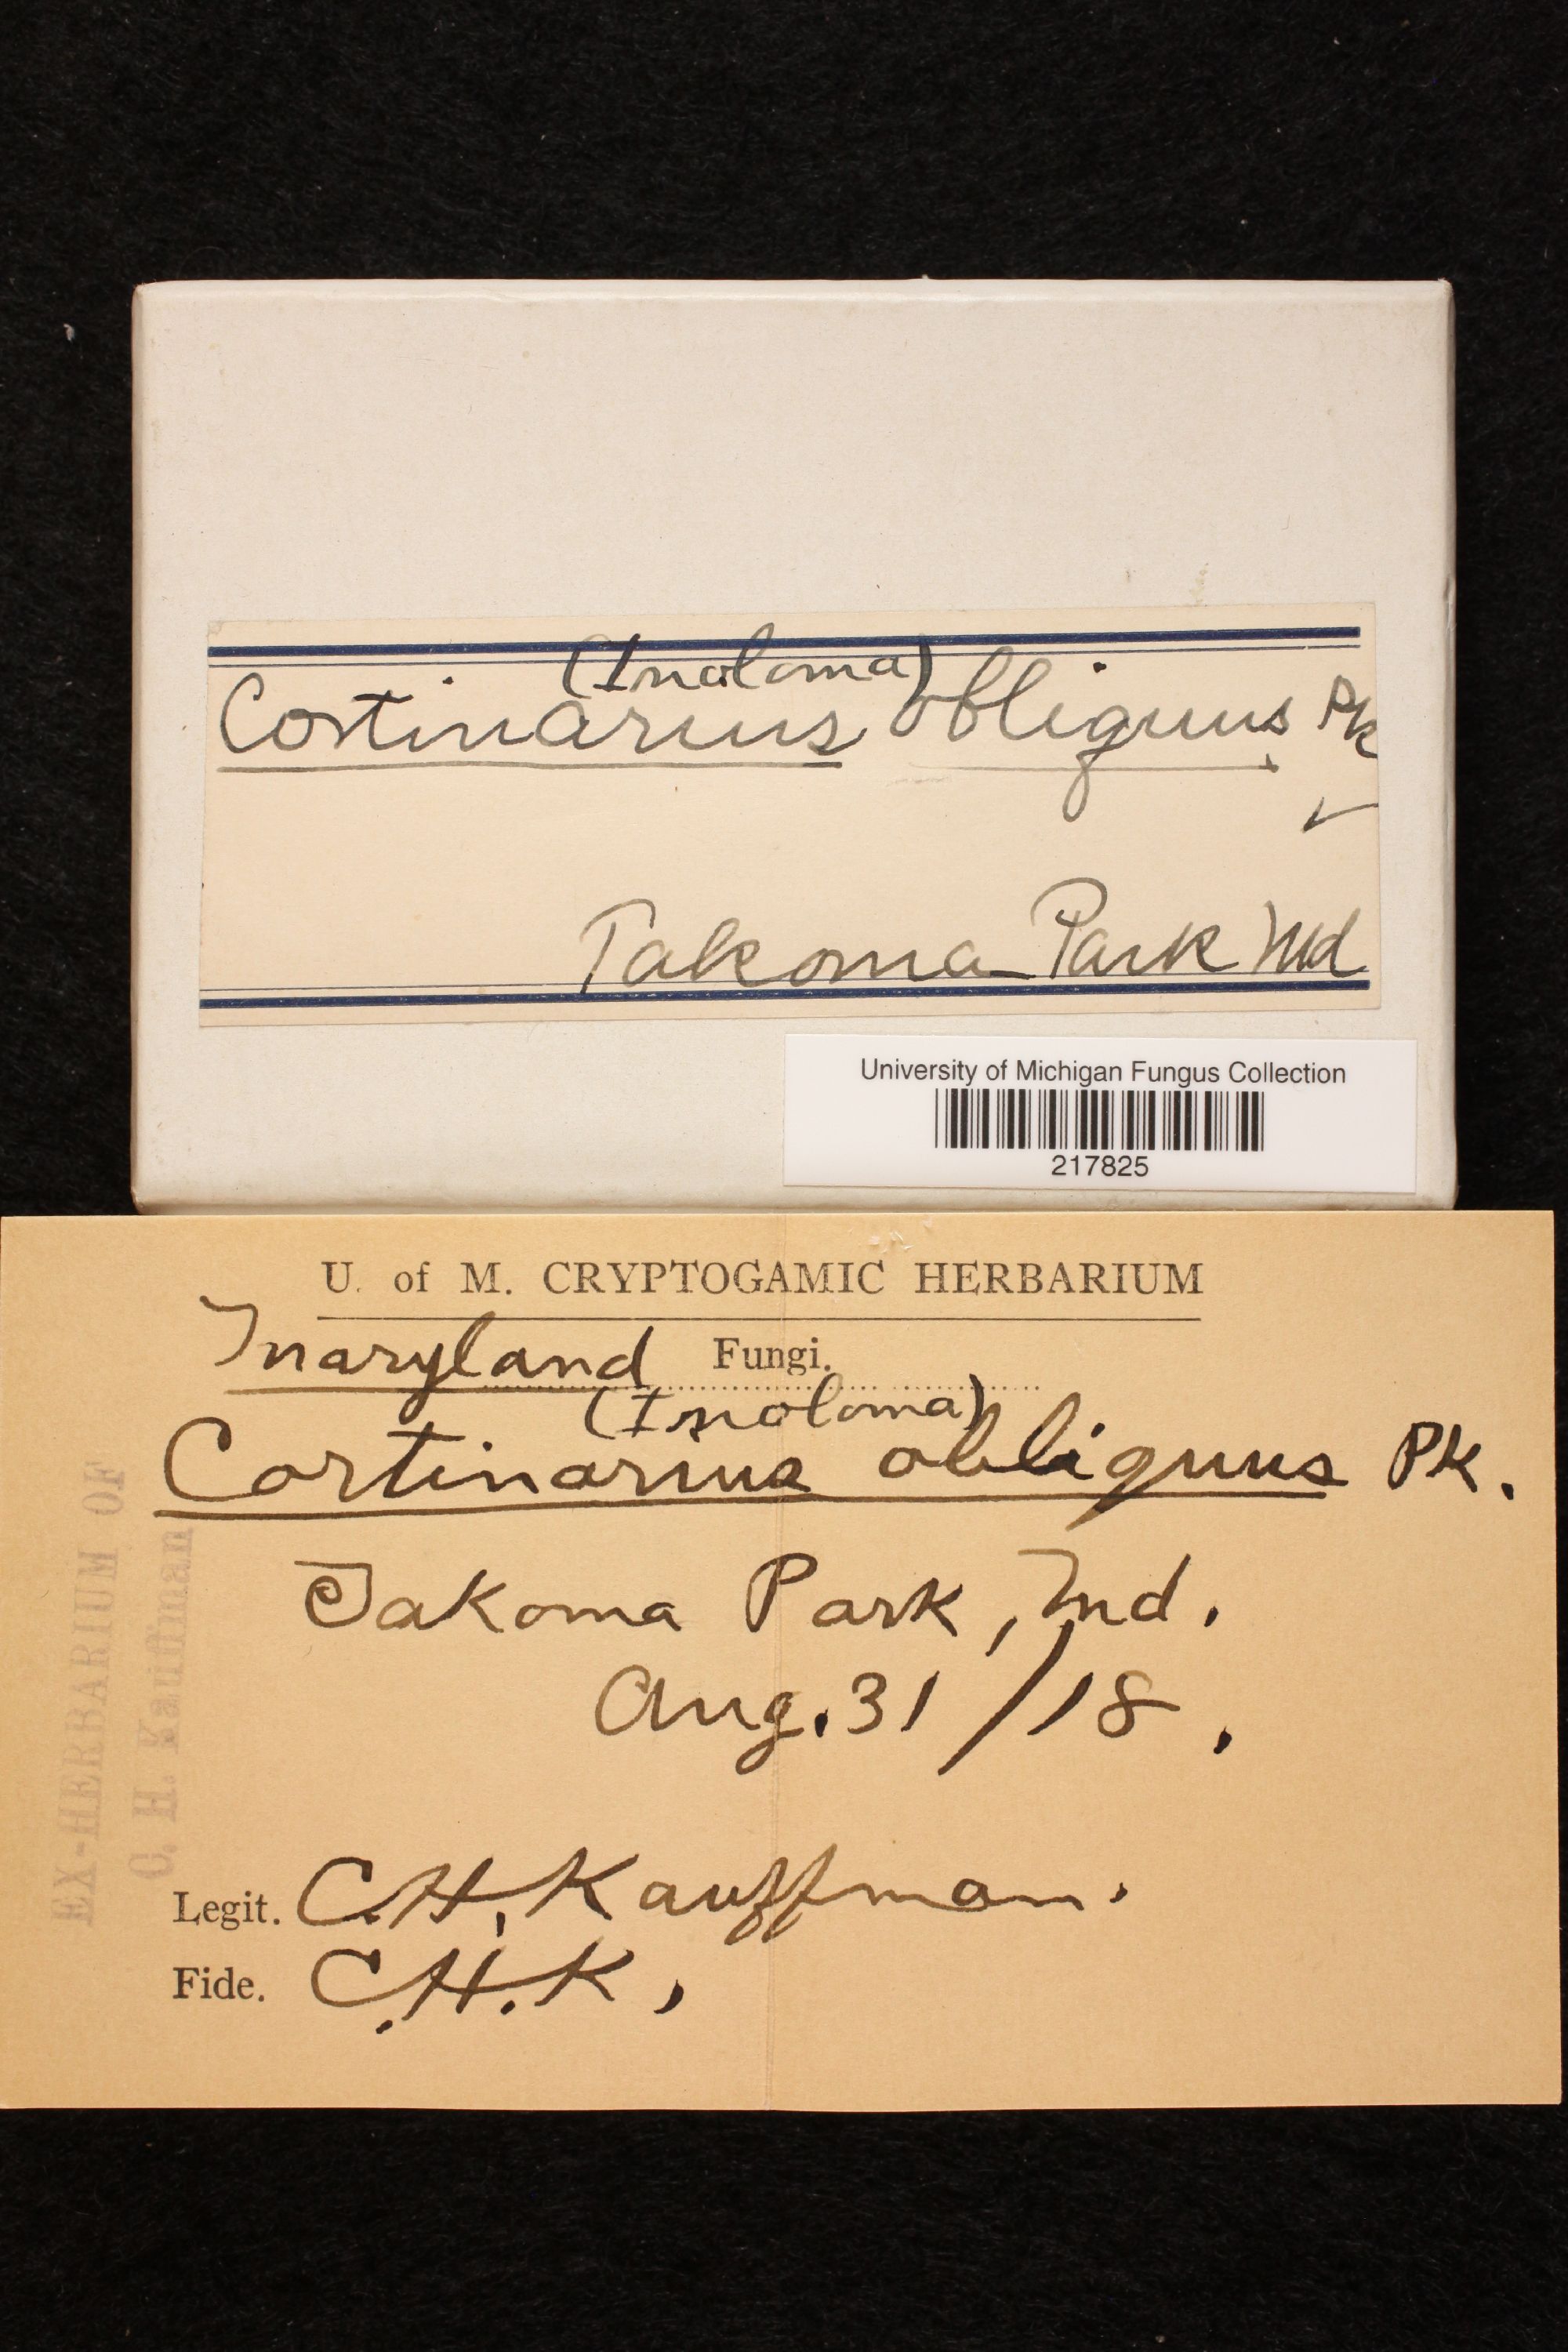 (Inoloma)
Cortinarius obliquus Pk
✓
Takoma Park Md
University of Michigan Fungus Collection
217825
U. of M. CRYPTOGAMIC HERBARIUM
Maryland Fungi.
(Inoloma)
Cortinarius obliquus Pk.
Takoma Park, Md.
Aug. 31/18.
Legit. C.H. Kauffman.
Fide. C.H.K.
EX-HERBARIUM OF
C. H. Kauffman